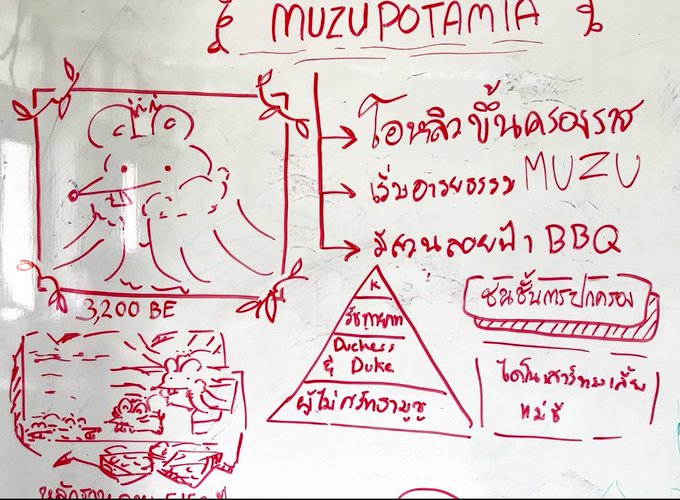 MUZUPOTAMIA
โอหลิวขึ้นครองราช
เริ่มอารยธรรม MUZU
มีสวนลอยฟ้า BBQ
3,200 BE
K
รัชทายาท
Duchess
& Duke
ผู้ไม่ศรัทธามูซู
ชนชั้นการปกครอง
ไดโนเสาร์